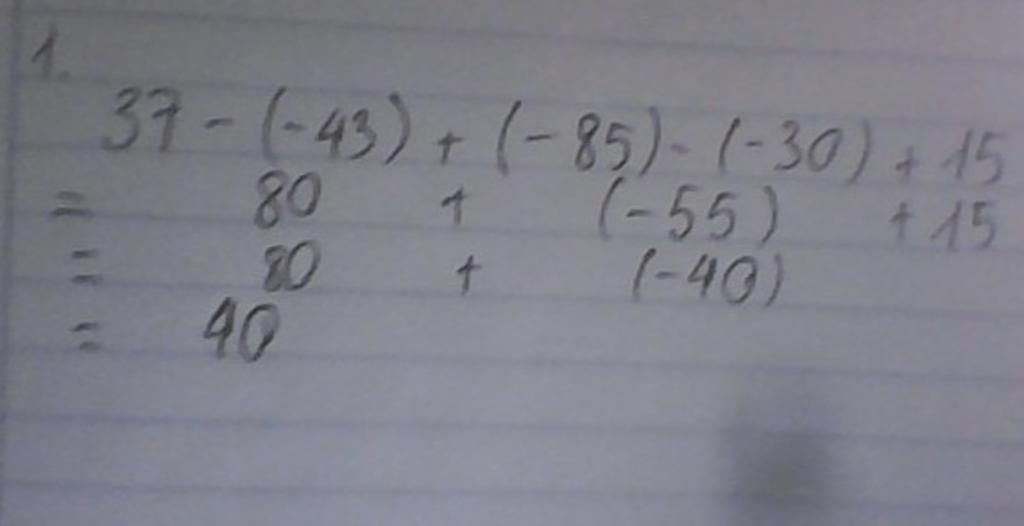 1.
37 - (-43) + (-85) - (-30) + 15
= 80 + (-55) + 15
= 80 + (-40)
= 40